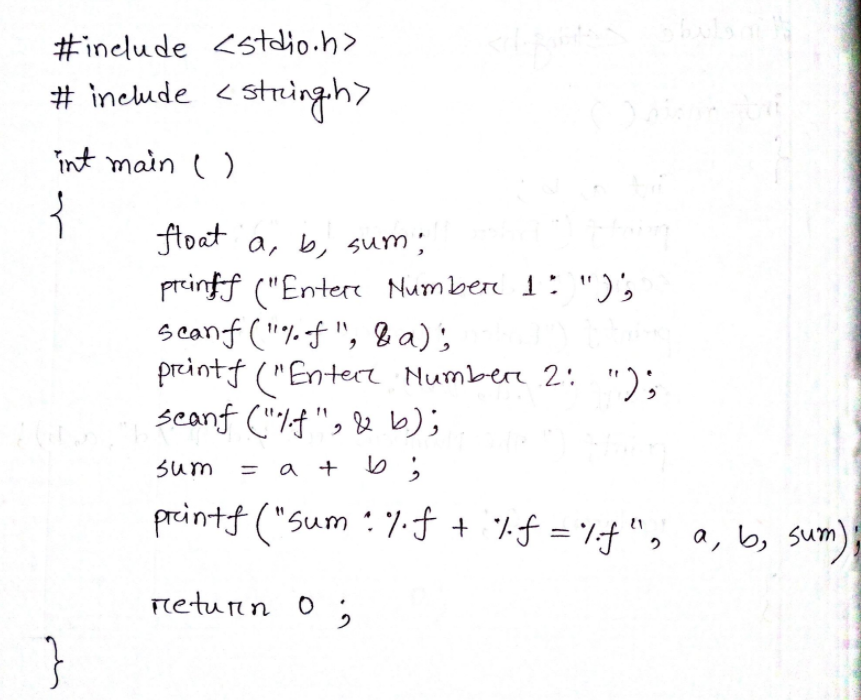 #include <stdio.h>
# include <string.h>
int main ( )
{
float a, b, sum;
printf ("Enter Number 1: ");
scanf ("%f", &a);
printf ("Enter Number 2: ");
scanf ("%f", & b);
sum = a + b ;
printf ("sum : %f + %f = %f", a, b, sum);
return 0 ;
}